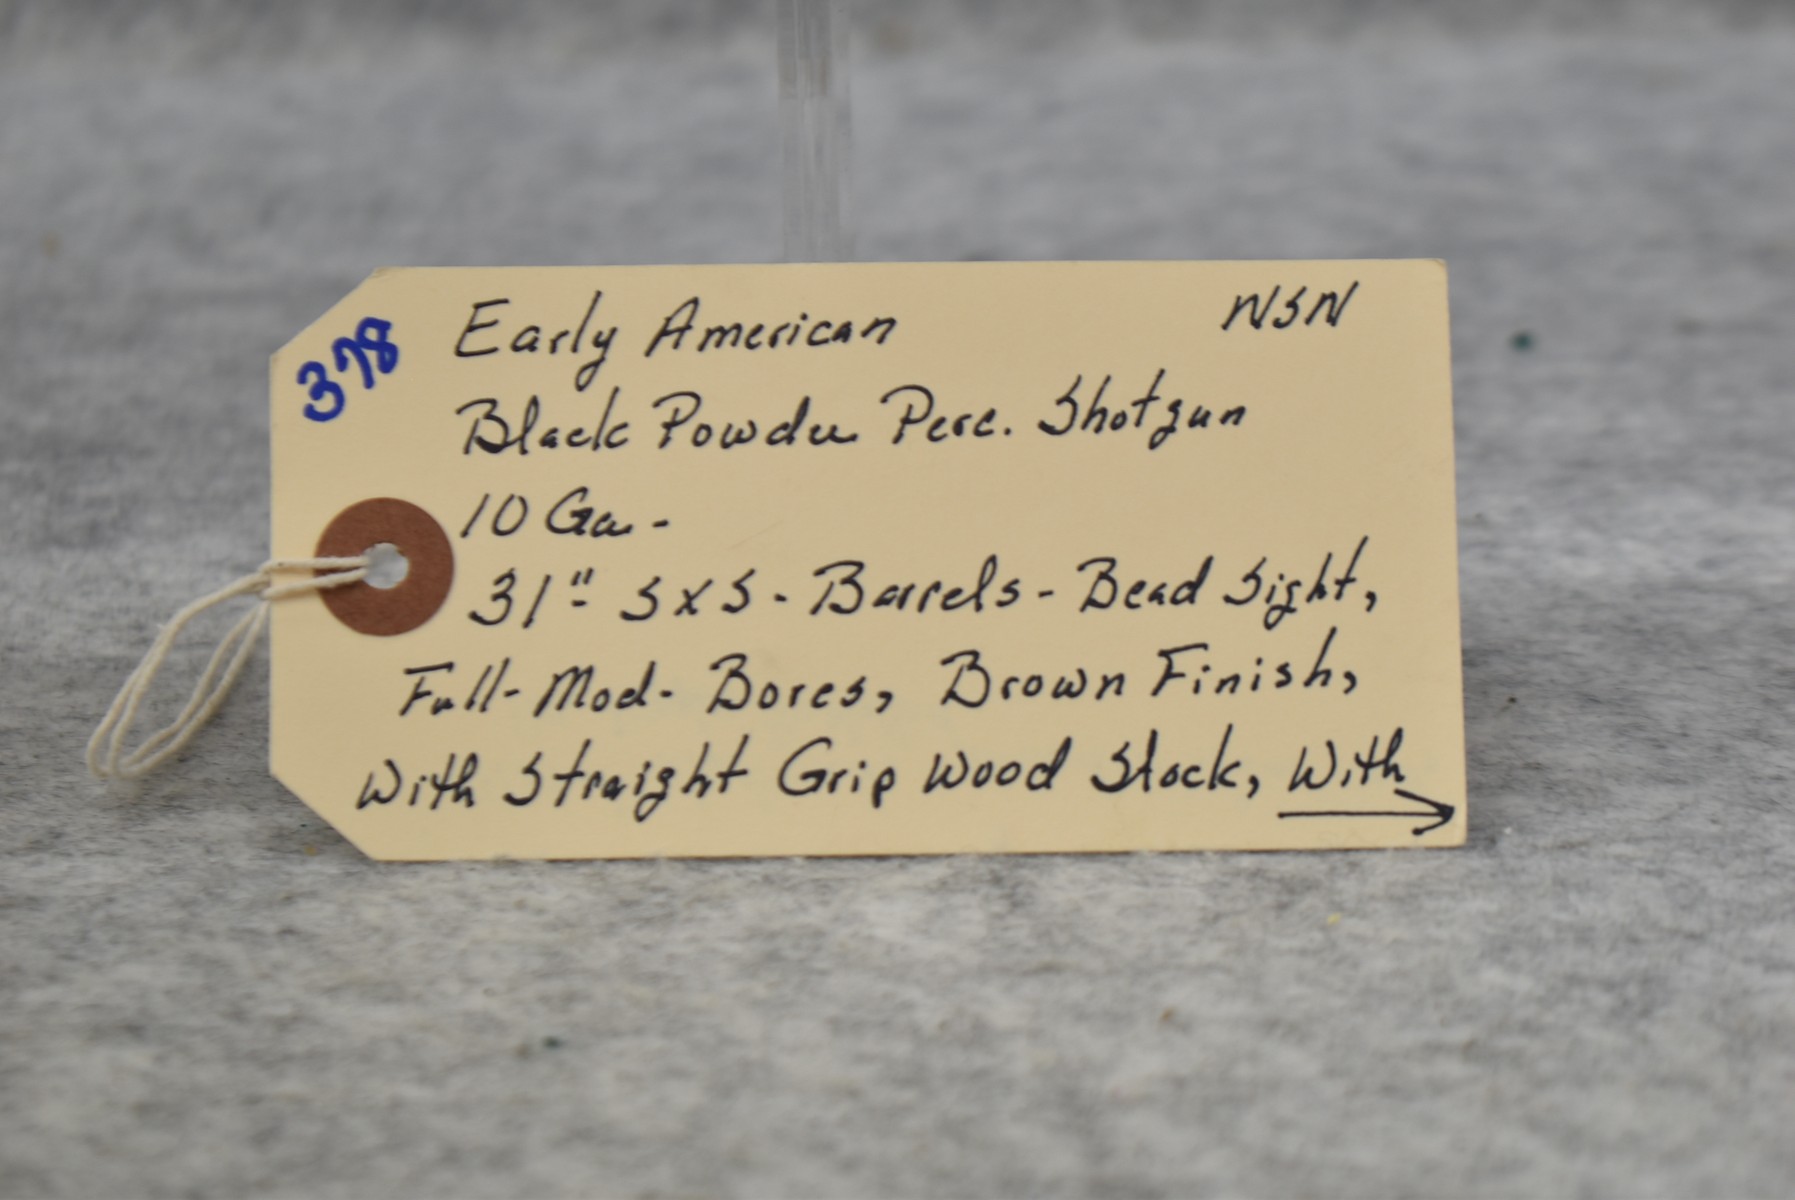 378
Early American NSN
Black Powder Perc. Shotgun
10 Ga.-
31"- SxS - Barrels - Bead Sight,
Full - Mod - Bores, Brown Finish,
With Straight Grip Wood Stock, With →